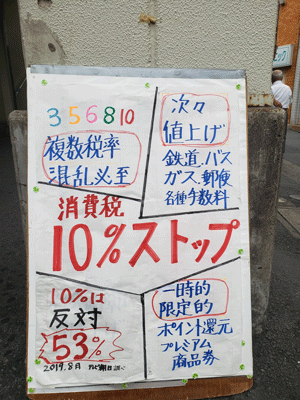 3 5 6 8 10
複数税率
混乱必至
次々
値上げ
鉄道、バス
ガス、郵便
各種手数料
消費税
10%ストップ
10%は
反対
53%
2019.8月 テレビ朝日調べ
一時的
限定的
ポイント還元
プレミアム
商品券